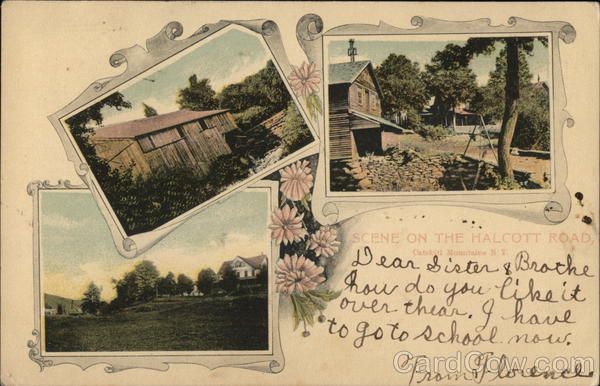 SCENE ON THE HALCOTT ROAD,
Catskill Mountains N. Y.
Dear Sister & Brothe
how do you like it
over thear. I have
to go to school now.
From Florence.
CardCow.com